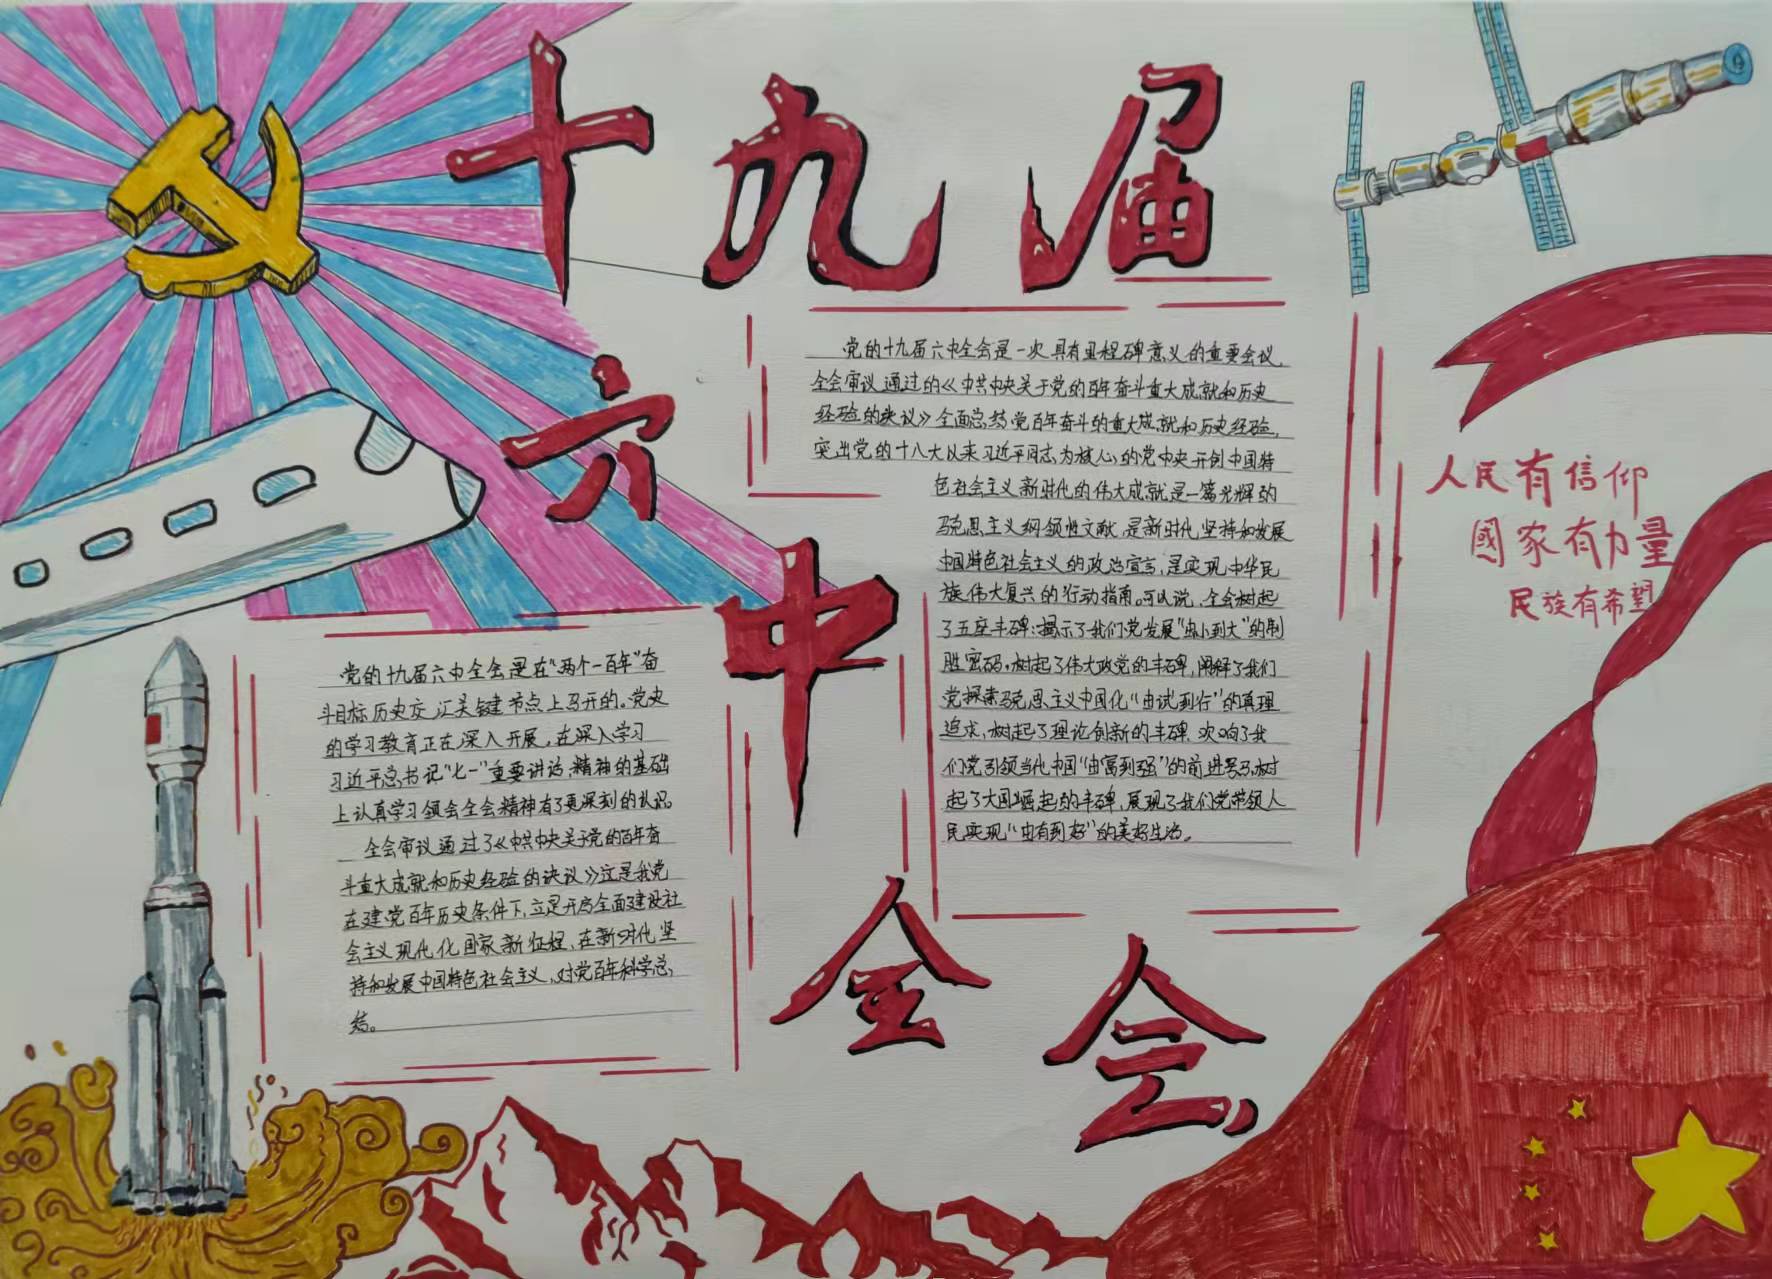 十九届
六中全会
党的十九届六中全会是一次具有里程碑意义的重要会议,
全会审议通过的《中共中央关于党的百年奋斗重大成就和历史
经验的决议》全面总结党百年奋斗的重大成就和历史经验,
突出党的十八大以来习近平同志为核心的党中央开创中国特
色社会主义新时代的伟大成就是一篇光辉的
马克思主义纲领性文献,是新时代坚持和发展
中国特色社会主义的政治宣言,是实现中华民
族伟大复兴的行动指南。可以说,全会树起
了五座丰碑:揭示了我们党发展“由小到大”的制
胜密码,树起了伟大政党的丰碑,阐释了我们
党探索马克思主义中国化“由试到行”的真理
追求,树起了理论创新的丰碑,吹响了我
们党引领当代中国“由富到强”的前进号子,树
起了大国崛起的丰碑,展现了我们党带领人
民实现“由有到好”的美好生活。
人民有信仰
國家有力量
民族有希望
党的十九届六中全会是在“两个一百年”奋
斗目标历史交汇关键节点上召开的。党史
的学习教育正在深入开展,在深入学习
习近平总书记“七一”重要讲话精神的基础
上认真学习领会全会精神有了更深刻的认识。
全会审议通过了《中共中央关于党的百年奋
斗重大成就和历史经验的决议》这是我党
在建党百年历史条件下,立足开启全面建设社
会主义现代化国家新征程,在新时代坚
持和发展中国特色社会主义,对党百年科学总
结。